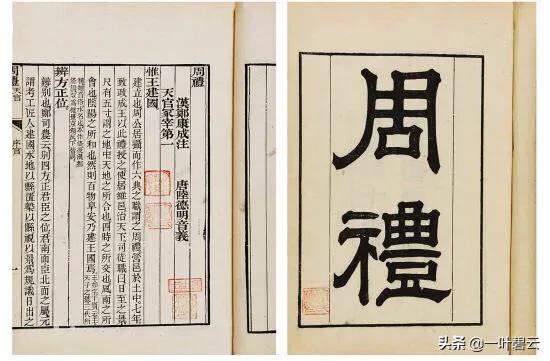 周禮
周禮
漢鄭康成注 唐陸德明音義
天官冢宰第一
惟王建國
建立也周公居攝而作六典之職謂之周禮營邑於土中七年
致政成王以此禮授之使居雒邑治天下司徒職曰日至之景
尺有五寸謂之地中天地之所合也四時之所交也風雨之所
會也陰陽之所和也然則百物阜安乃建王國焉
辨方正位
辨別也鄭司農云別四方正君臣之位君南面臣北面之屬元
謂考工匠人建國水地以縣置槷以縣視以景爲規識日出之
周禮 天官 序官 一
头条 @一叶碧云